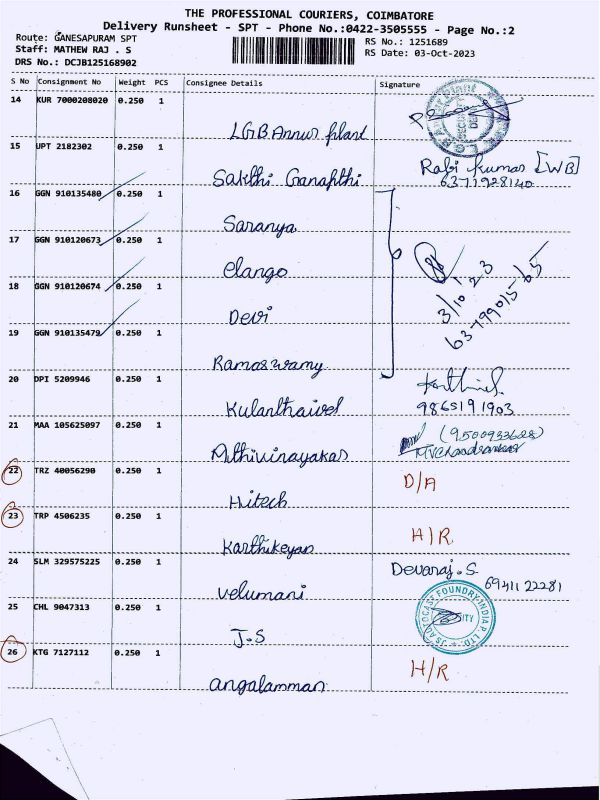 THE PROFESSIONAL COURIERS, COIMBATORE
Delivery Runsheet - SPT - Phone No.:0422-3505555 - Page No.:2
Route: GANESAPURAM SPT
Staff: MATHEW RAJ . S
DRS No.: DCJB125168902
RS No.: 1251689
RS Date: 03-Oct-2023
S No Consignment No Weight PCS Consignee Details Signature
14 KUR 7000208020 0.250 1
LGB Annur plant
15 UPT 2182302 0.250 1
Sakthi Ganapthi
Rabi Kumar [WB]
6371928140
16 GGN 910135480 0.250 1
Saranya
17 GGN 910120673 0.250 1
elango
18 GGN 910120674 0.250 1
Devi
3/10 23
63799015-65
19 GGN 910135479 0.250 1
Ramaswamy
20 DPI 5209946 0.250 1
Kulanthaivel
9865191903
21 MAA 105625097 0.250 1
Athivinayakar
(9500933628)
22 TRZ 40056290 0.250 1
Hitech
D/A
23 TRP 4506235 0.250 1
Karthikeyan
H/R
24 SLM 329575225 0.250 1
Velumani
Devaraj.S
69411 22281
25 CHL 9047313 0.250 1
J.S
JS AUTOCAST FOUNDRY INDIA P. LTD.
26 KTG 7127112 0.250 1
angalamman
H/R